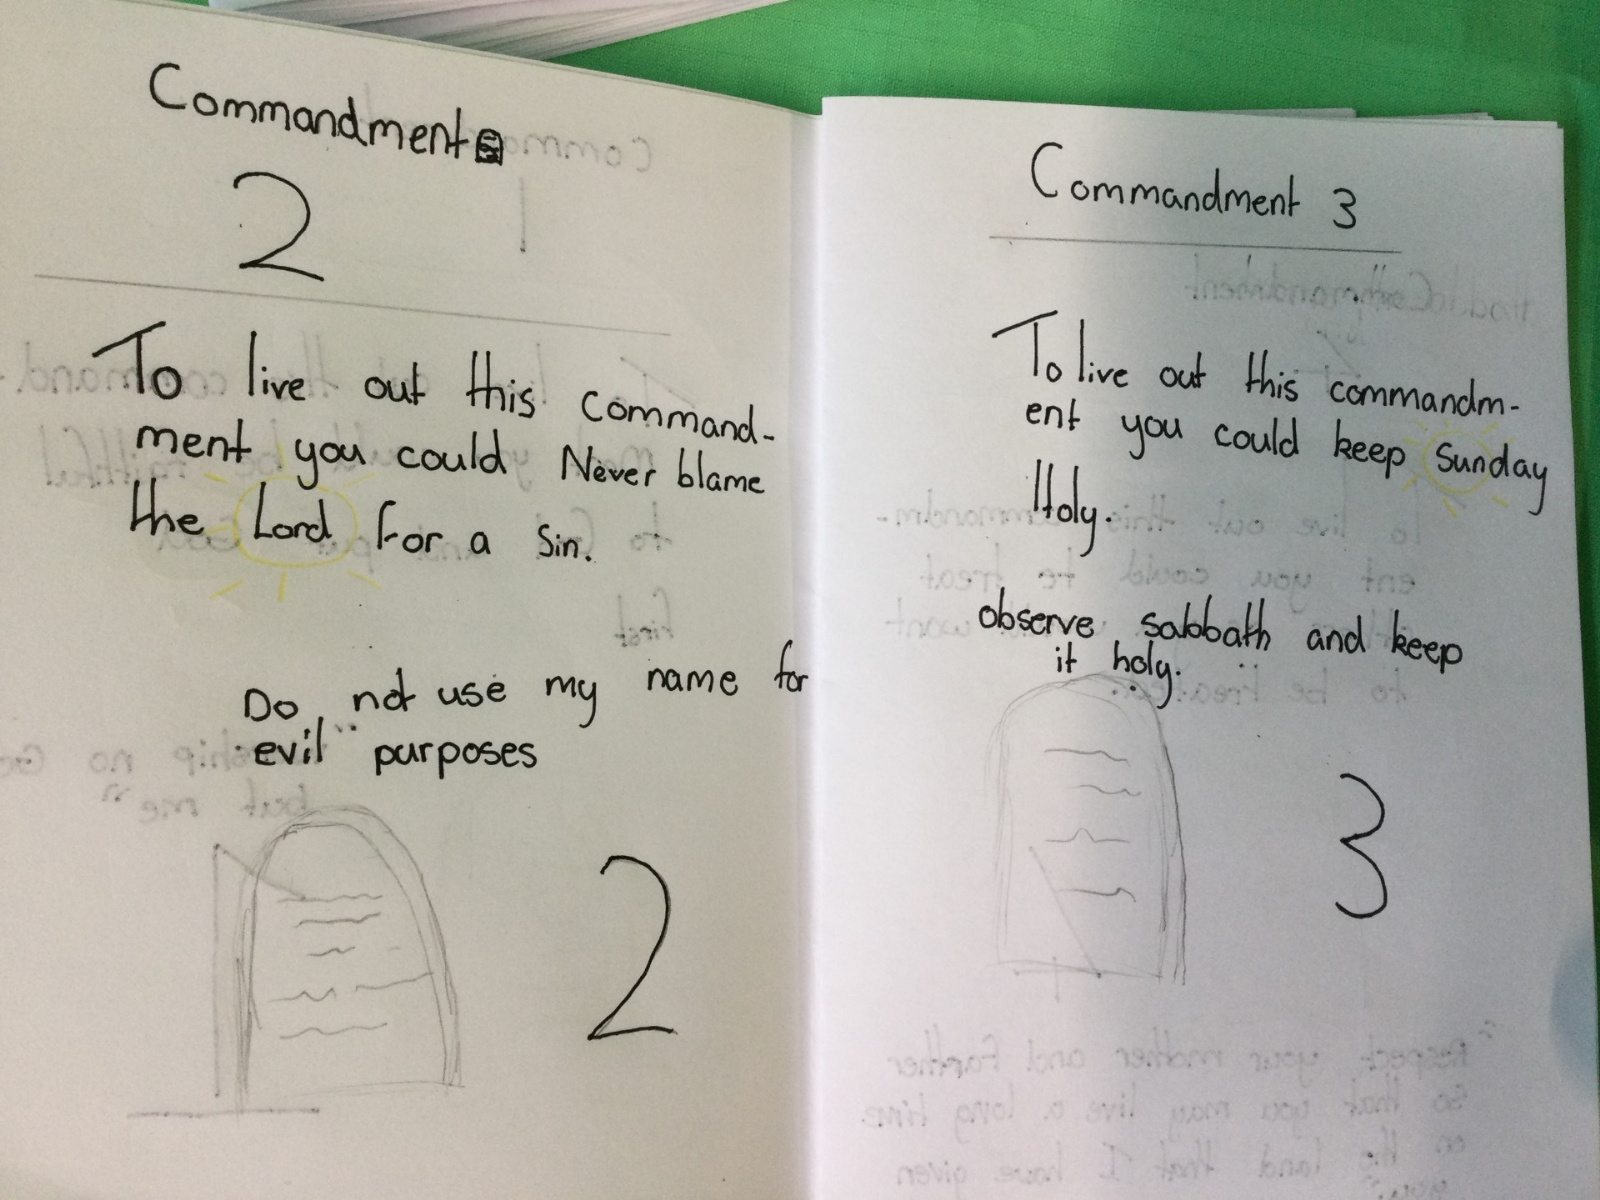 Commandment
2
To live out this command-
ment you could Never blame
the Lord for a sin.
Do not use my name for
evil" purposes
2
Commandment 3
To live out this commandm-
ent you could keep Sunday
Holy.
observe sabbath and keep
it holy.
3